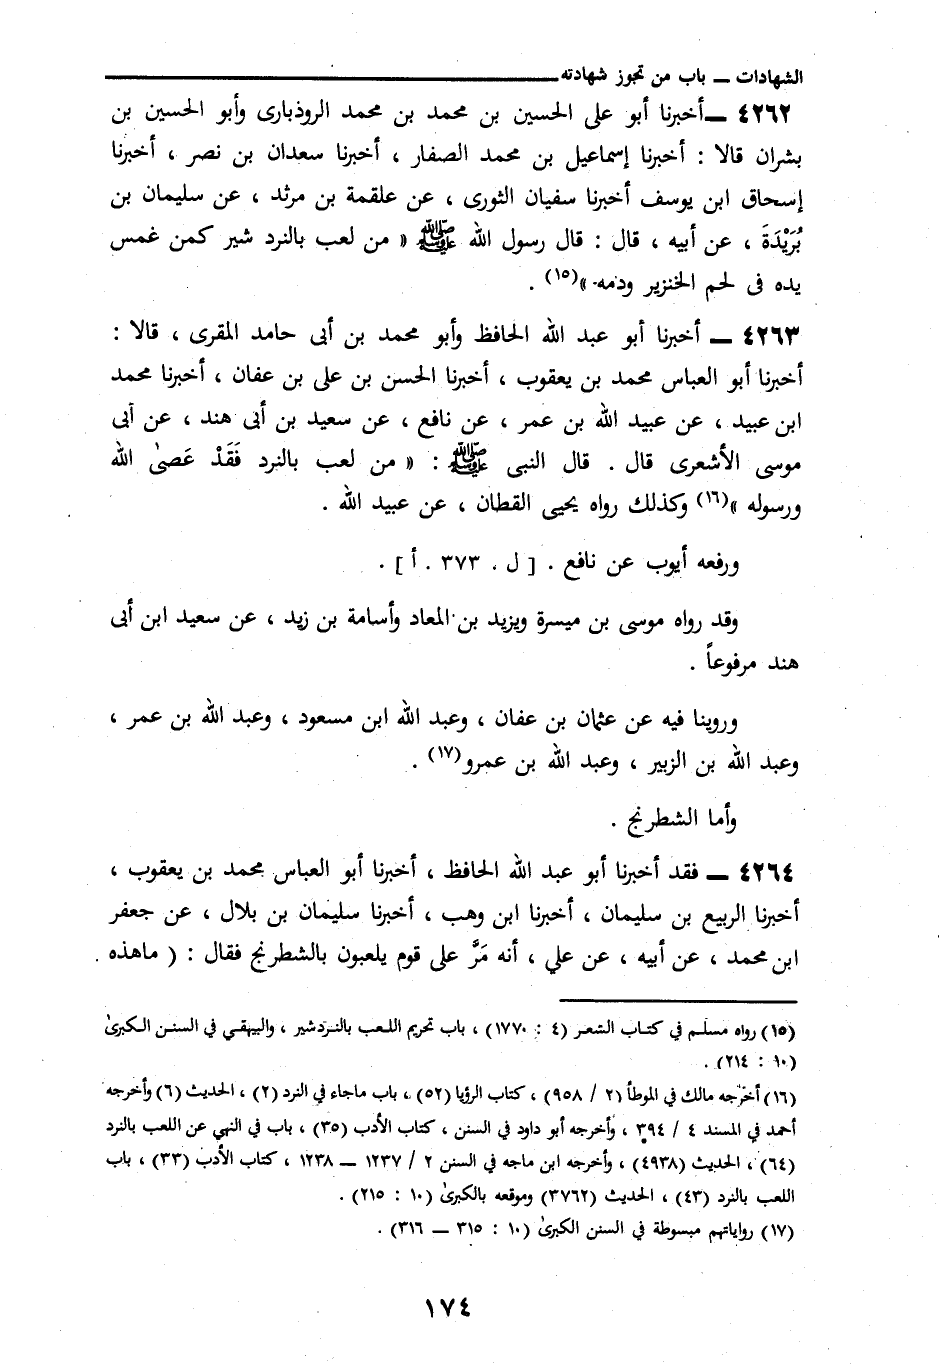 الشهادات ــ باب من تجوز شهادته
٤٢٦٢ ــ أخبرنا أبو على الحسين بن محمد بن محمد الروذبارى وأبو الحسين بن
بشران قالا : أخبرنا إسماعيل بن محمد الصفار ، أخبرنا سعدان بن نصر ، أخبرنا
إسحاق ابن يوسف أخبرنا سفيان الثورى ، عن علقمة بن مرثد ، عن سليمان بن
بُرَيْدَةَ ، عن أبيه ، قال : قال رسول الله ﷺ « من لعب بالنرد شير كمن غمس
يده فى لحم الخنزير ودمه »(١٥) .
٤٢٦٣ ــ أخبرنا أبو عبد الله الحافظ وأبو محمد بن أبى حامد المقرى ، قالا :
أخبرنا أبو العباس محمد بن يعقوب ، أخبرنا الحسن بن على بن عفان ، أخبرنا محمد
ابن عبيد ، عن عبيد الله بن عمر ، عن نافع ، عن سعيد بن أبى هند ، عن آبى
موسى الأشعرى قال . قال النبى ﷺ : « من لعب بالنرد فَقَدْ عَصىٰ الله
ورسوله »(١٦) وكذلك رواه يحيى القطان ، عن عبيد الله .
ورفعه أيوب عن نافع . [ ل . ٣٧٣ . أ ] .
وقد رواه موسى بن ميسرة ويزيد بن المعاد وأسامة بن زيد ، عن سعيد ابن أبى
هند مرفوعاً .
وروينا فيه عن عثمان بن عفان ، وعبد الله ابن مسعود ، وعبد الله بن عمر ،
وعبد الله بن الزبير ، وعبد الله بن عمرو(١٧) .
وأما الشطرنج .
٤٢٦٤ ــ فقد أخبرنا أبو عبد الله الحافظ ، أخبرنا أبو العباس محمد بن يعقوب ،
أخبرنا الربيع بن سليمان ، أخبرنا ابن وهب ، أخبرنا سليمان بن بلال ، عن جعفر
ابن محمد ، عن أبيه ، عن علي ، أنه مَرَّ على قوم يلعبون بالشطرنج فقال : ( ماهذه
(١٥) رواه مسلم في كتاب الشعر (٤ : ١٧٧٠) ، باب تحريم اللعب بالنردشير ، والبيهقي في السنن الكبرىٰ
(١٠ : ٢١٤) .
(١٦) أخرجه مالك في الموطأ (٢ / ٩٥٨) ، كتاب الرؤيا (٥٢) ، باب ماجاء في النرد (٢) ، الحديث (٦) وأخرجه
أحمد في المسند ٤ / ٣٩٤ ، وأخرجه أبو داود في السنن ، كتاب الأدب (٣٥) ، باب في النهي عن اللعب بالنرد
(٦٤) ، الحديث (٤٩٣٨) ، وأخرجه ابن ماجه في السنن ٢ / ١٢٣٧ ــ ١٢٣٨ ، كتاب الأدب (٣٣) ، باب
اللعب بالنرد (٤٣) ، الحديث (٣٧٦٢) وموقعه بالكبرىٰ (١٠ : ٢١٥) .
(١٧) رواياتهم مبسوطة في السنن الكبرىٰ (١٠ : ٣١٥ ــ ٣١٦) .
١٧٤